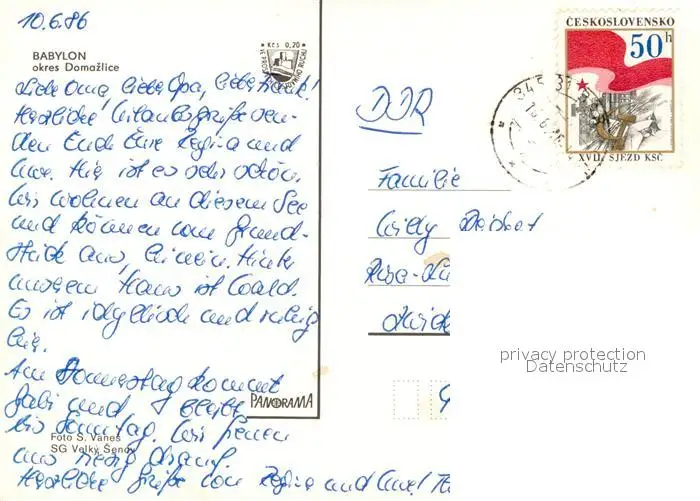 10.6.86
BABYLON
okres Domažlice
Kčs 0,20
Liebe Oma, lieber Opa, liebe
Herzliche Urlaubsgrüße sen-
den Euch Eure Regina und
Uwe. Hier ist es sehr schön.
Wir wohnen an diesem See
und können vom Grund-
stück aus, hinein. Hinter
unserem Haus ist Wald.
Es ist idyllisch und ruhig
hier.
Am Donnerstag kommt
Gabi und bleibt
bis Sonntag. Wir freuen
uns riesig drauf.
Herzliche Grüße von Regina und Uwe!
Foto S. Vaneš
SG Velký Šenov
PANORAMA
ČESKOSLOVENSKO
50h
XVII. SJEZD KSČ
345 31
DDR
Familie
Willy
privacy protection
Datenschutz